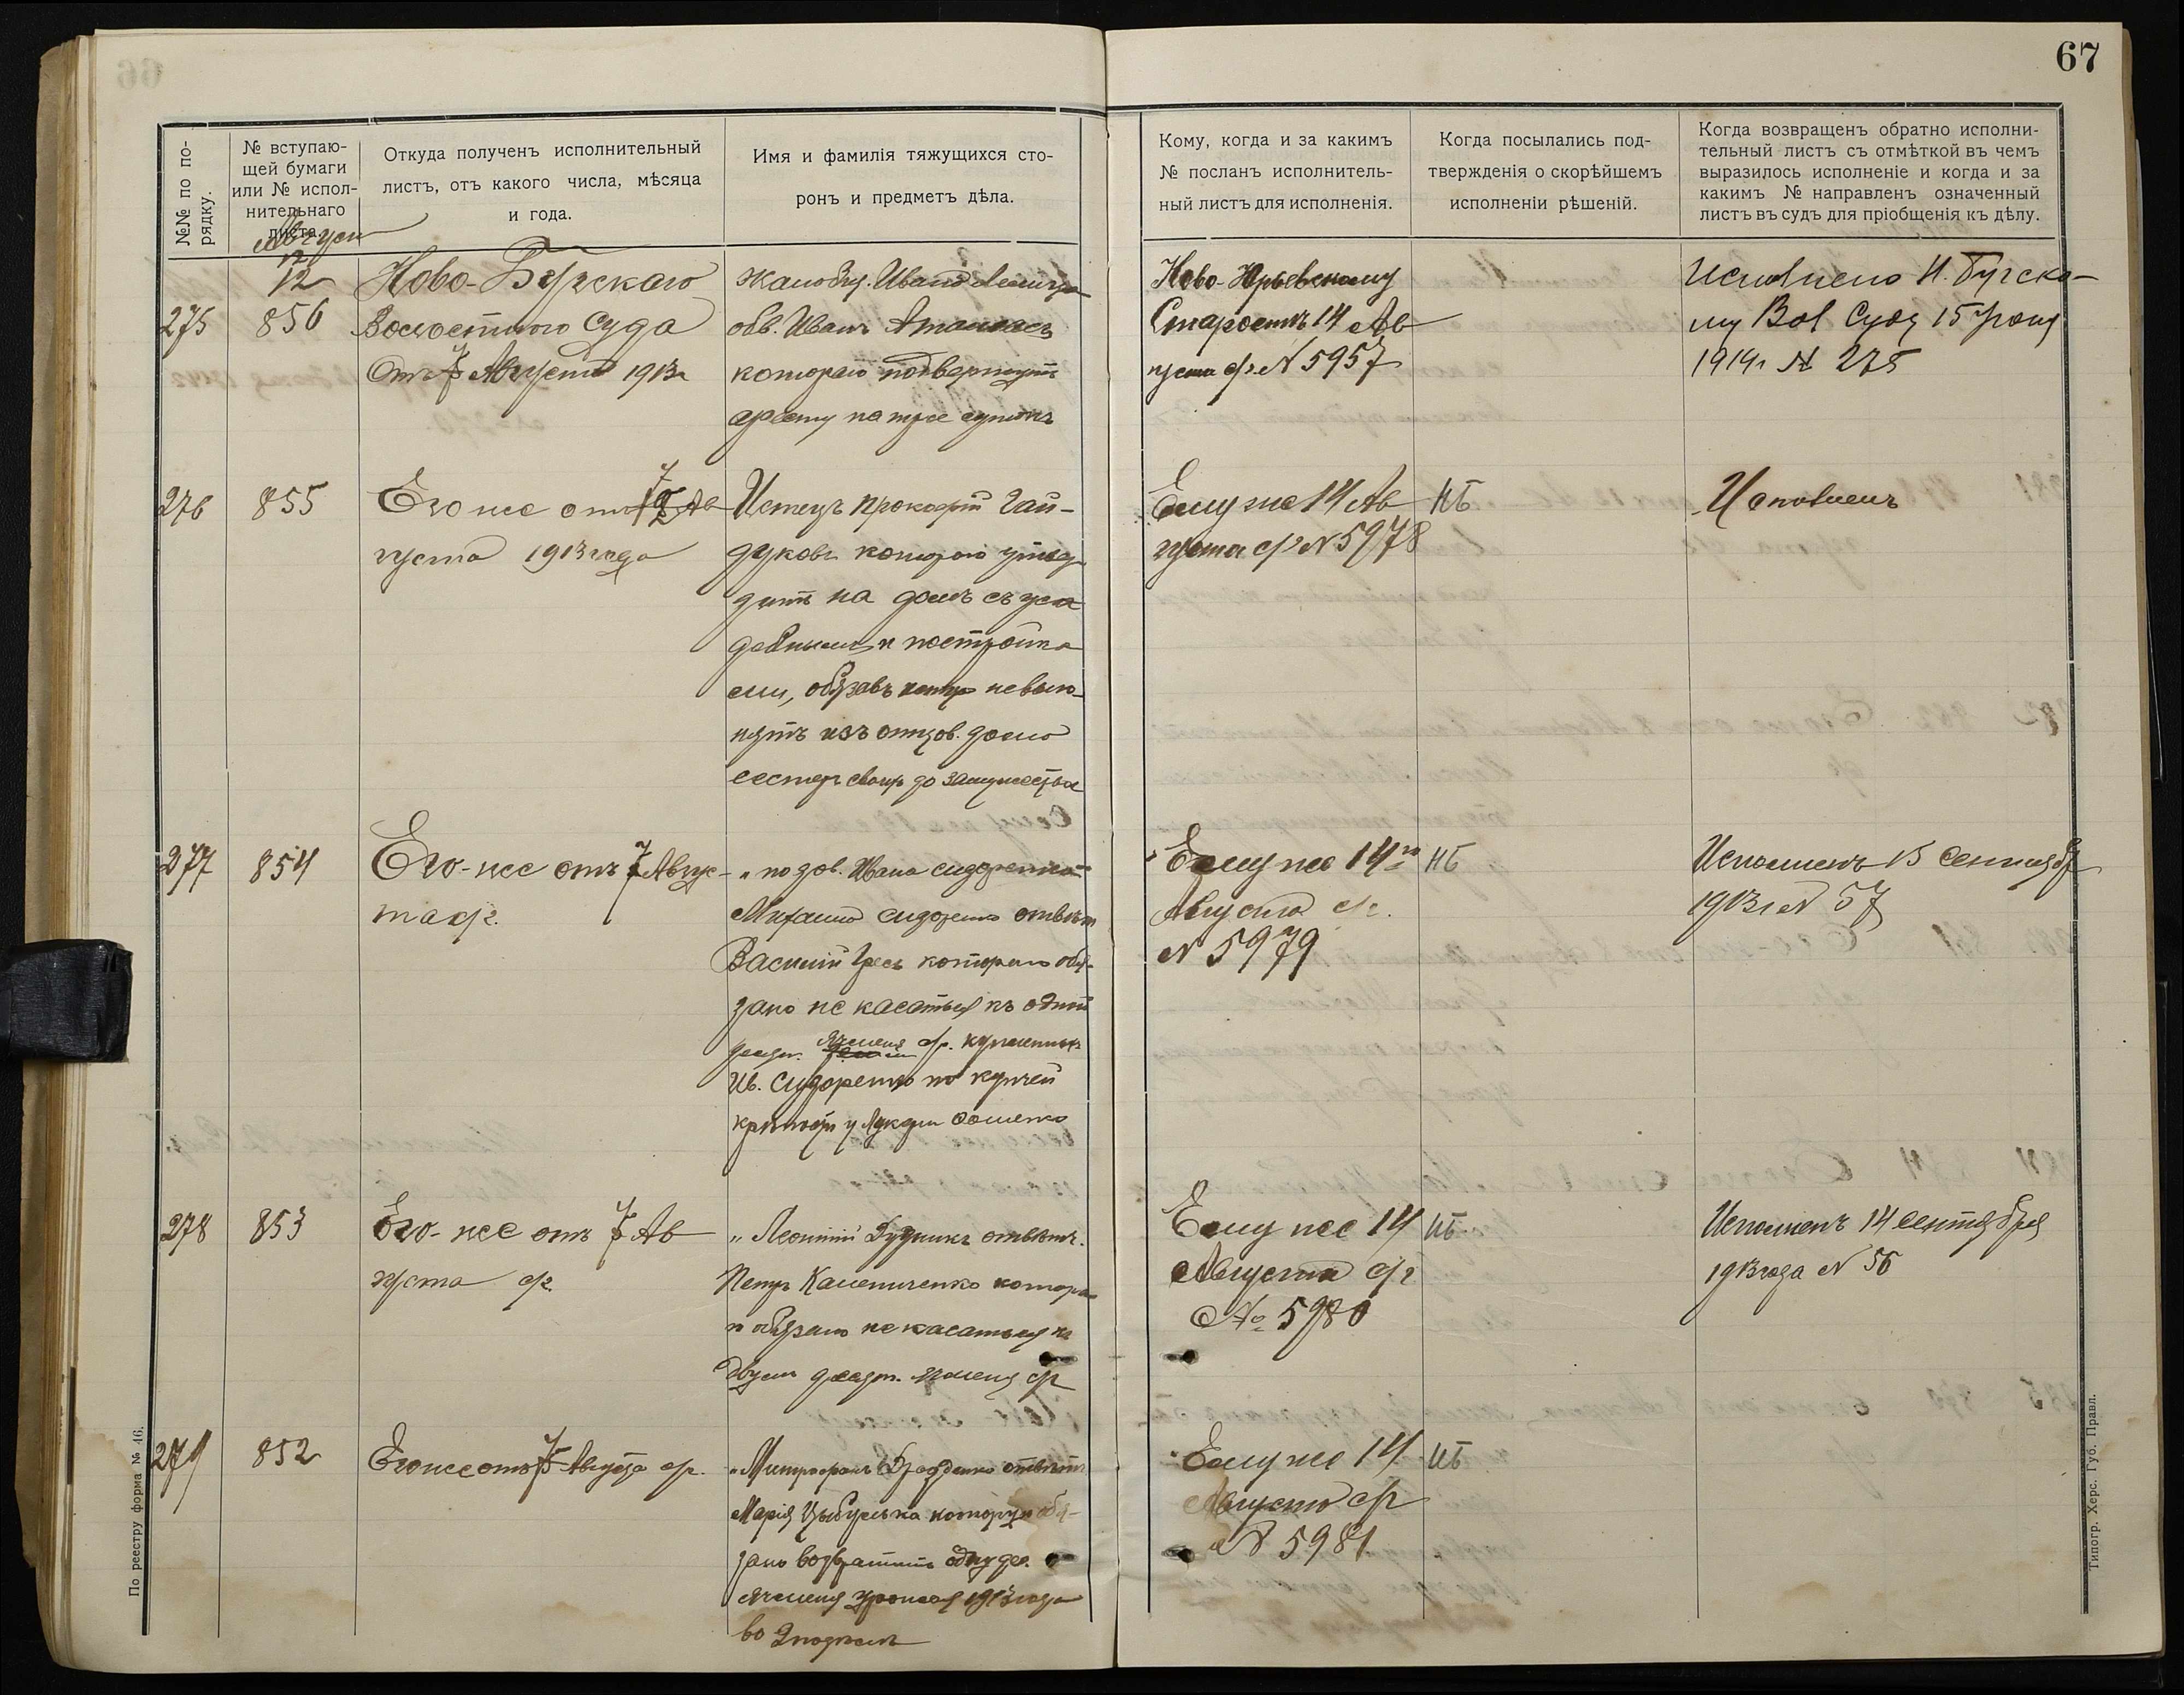 67
№№ по по-
рядку.
№ вступаю-
щей бумаги
или № испол-
нительнаго
листа.
Откуда полученъ исполнительный
листъ, отъ какого числа, мѣсяца
и года.
Имя и фамилія тяжущихся сто-
ронъ и предметъ дѣла.
Кому, когда и за какимъ
№ посланъ исполнитель-
ный листъ для исполненія.
Когда посылались под-
твержденія о скорѣйшемъ
исполненіи рѣшеній.
Когда возвращенъ обратно исполни-
тельный листъ съ отмѣткой въ чемъ
выразилось исполненіе и когда и за
какимъ № направленъ означенный
листъ въ судъ для пріобщенія къ дѣлу.
12
275
856
Ново-Бугскаго
Волостного Суда
Отъ 7 Августа 1913г
Иванъ
обв. Иванъ
котораго подвергнуть
аресту на трое сутокъ
Ново-Юрьевскому
Старостѣ 14 Ав
густа с/г. № 5957
Исполнено Н. Бугско-
му Вол Суду 15
1914г № 275
276
855
Его же отъ 7 Ав
густа 1913 года
Истецъ Прокофій Гай-
дуковъ котораго
на домъ съ уса
дебнымъ и постройка
ми, обязавъ
изъ отцов. дома
сестеръ своихъ до замужества
Ему же 14 Ав
густа с/г № 5978
НБ
Исполненъ
277
854
Его-же отъ 7 Авгус-
та с/г.
" по дов. Ивана Сидоренко
Михаилъ Сидоренко отвѣт
Василій котораго обя-
зано не касаться къ одной
десят. ячменя с/г. купленныхъ
Ив. Сидоренко по купчей
крѣпости у
Ему же 14го
Августа с/г.
№ 5979
НБ
Исполненъ 13 Сентября
1913г № 57
278
853
Его-же отъ 7 Ав
густа с/г.
" Леонтій Дудникъ отвѣтч.
Петръ Каменченко котора
го обязано не касаться къ
двумъ десят. ячменя с/г
Ему же 14
Августа с/г
№ 5980
НБ
Исполненъ 14 Сентября
1913 года № 56
279
852
Его же отъ 7 Августа с/г.
" Митрофанъ отвѣтч
Марія Цыбулька которую обя-
зано возвратить одну дес.
ячменя урожая 1913 года
Ему же 14
Августа с/г
№ 5981
НБ
По реестру форма № 46.
Типогр. Херс. Губ. Правл.